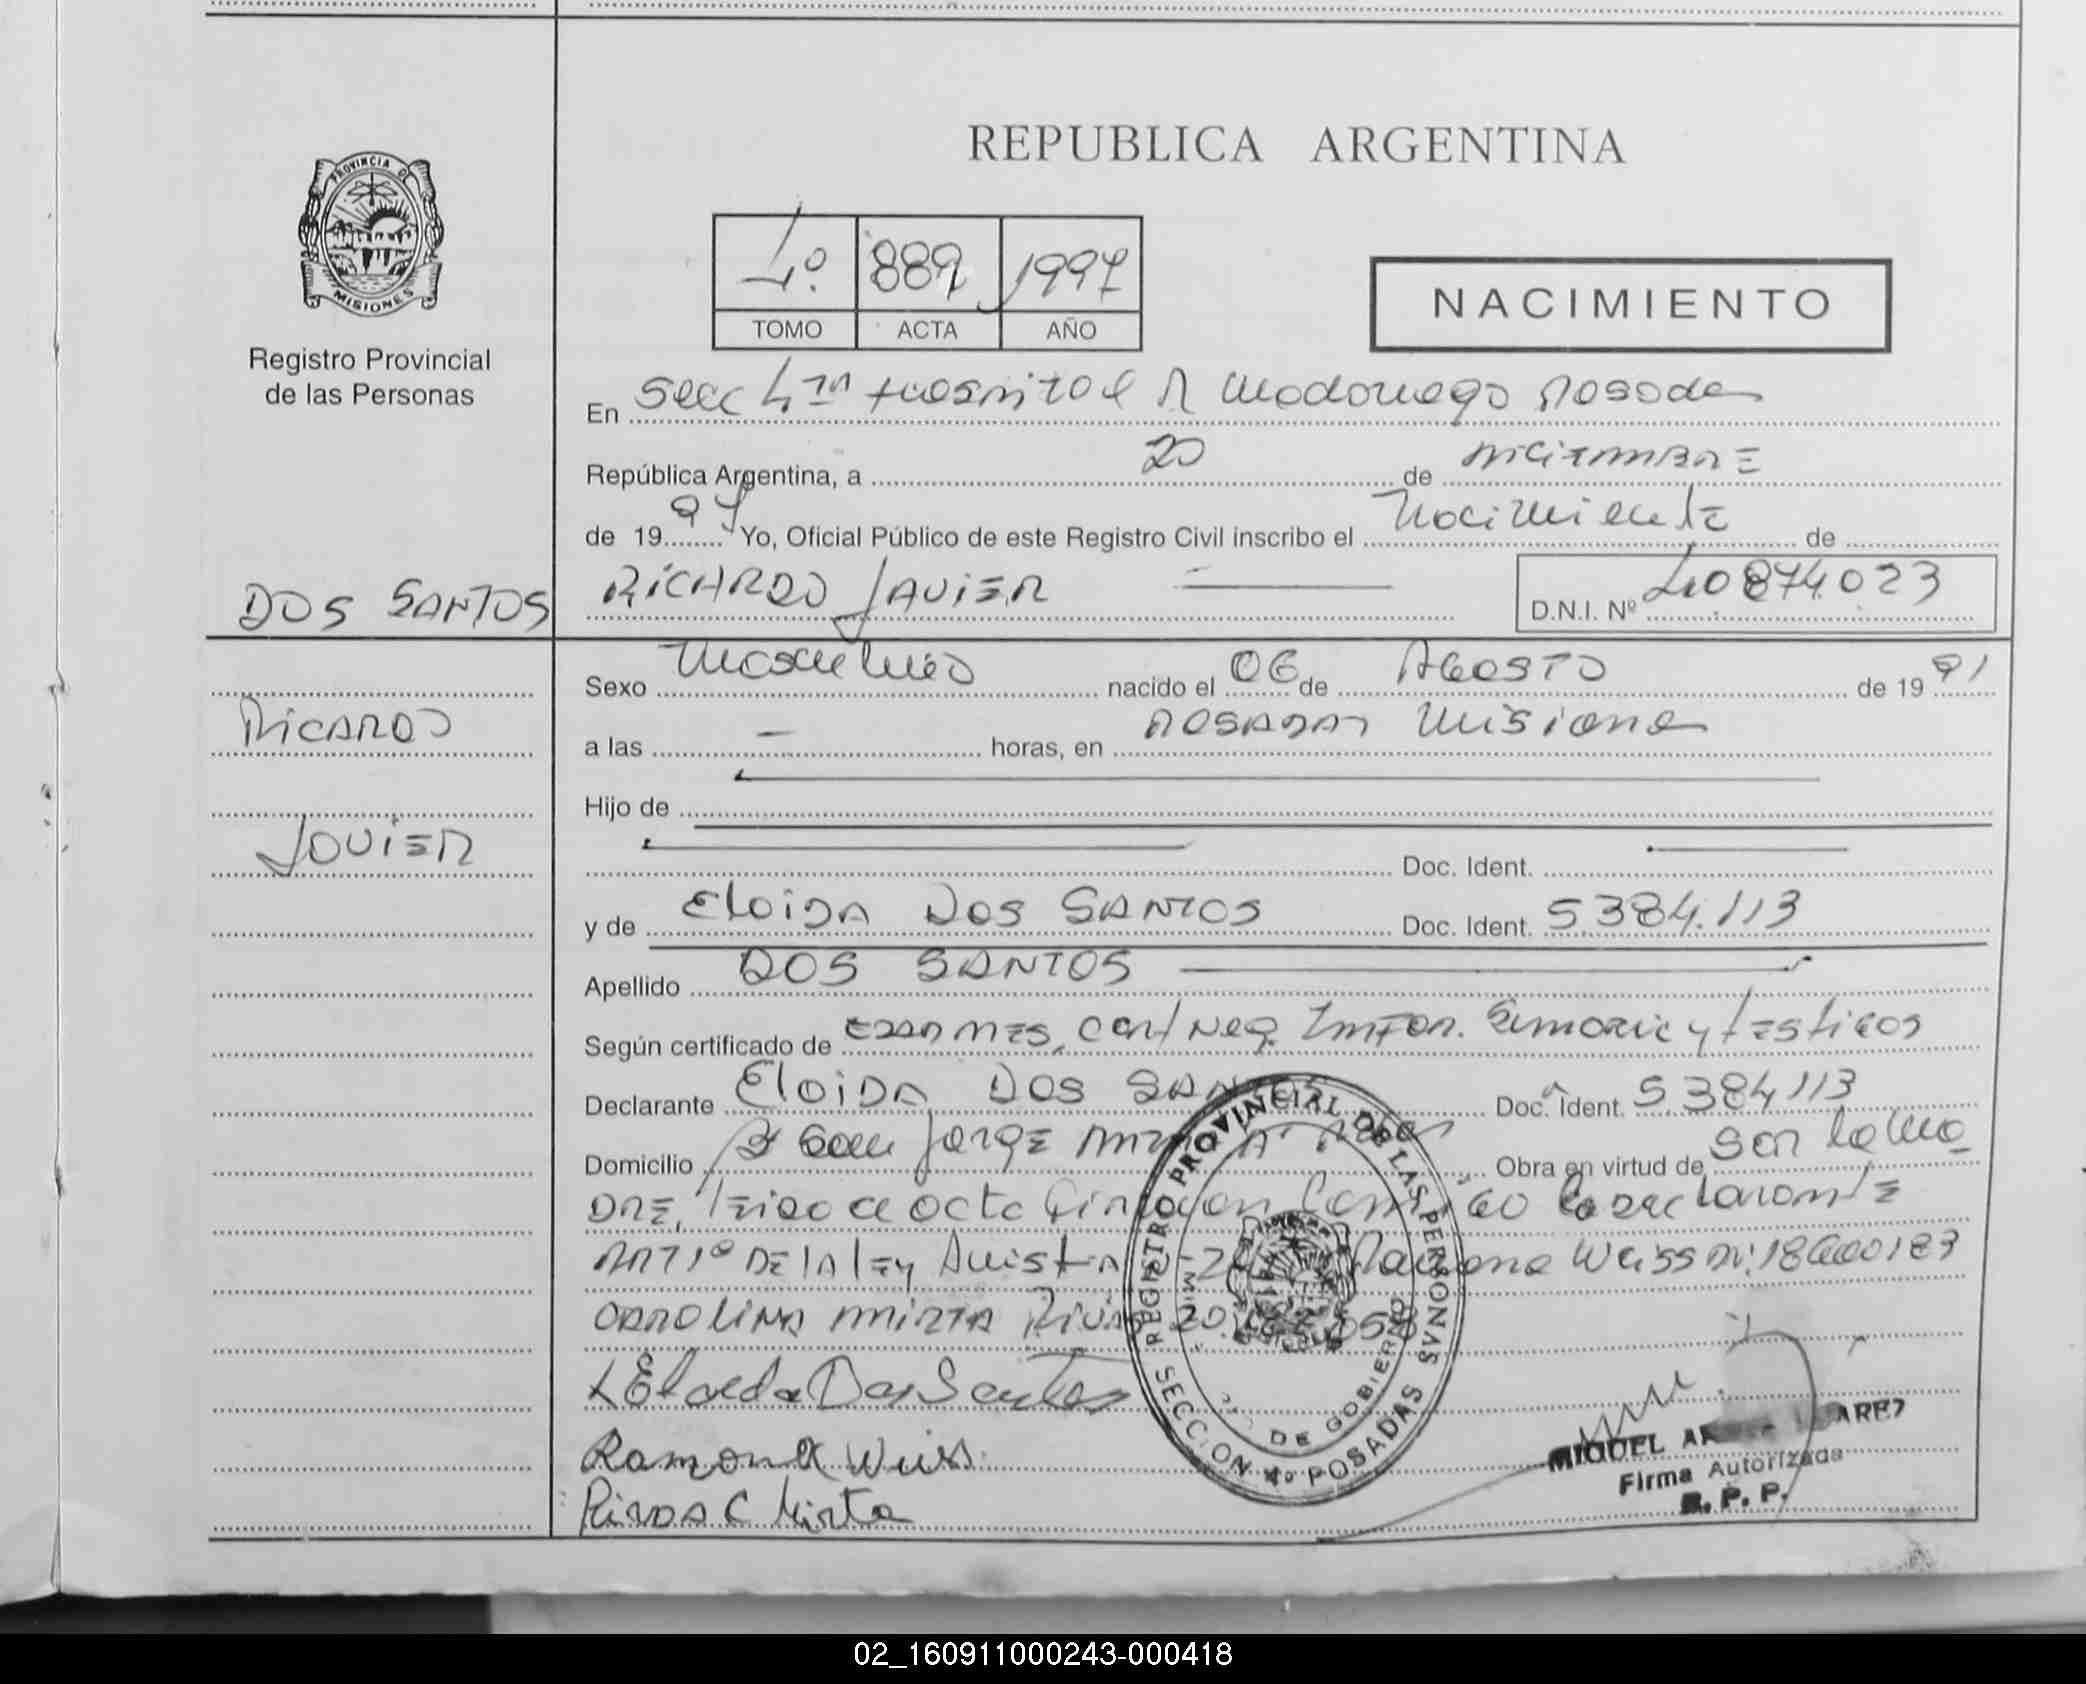 REPUBLICA ARGENTINA
PROVINCIA D
MISIONES
Registro Provincial
de las Personas
4º 889 1997
TOMO ACTA AÑO
NACIMIENTO
En Secc 4ta Hospital R Madariaga Posadas
República Argentina, a 20 de DICIEMBRE
de 1997 Yo, Oficial Público de este Registro Civil inscribo el Nacimiento de
DOS SANTOS RICARDO JAVIER D.N.I. Nº 40874023
Sexo Masculino nacido el 06 de AGOSTO de 1991
RICARDO
a las — horas, en POSADAS Misiones
Hijo de
JAVIER
Doc. Ident.
y de Eloida DOS SANTOS Doc. Ident. 5384.113
Apellido DOS SANTOS
Según certificado de EXAMNES, cert Neg. y Testigos
Declarante Eloida DOS SANTOS Doc. Ident. 5384113
Domicilio Bº San Jorge Obra en virtud de ser la Ma
DRE, leida el acta Firman Conmigo la declarante
ART 1º DE LA Ley Ramona Weiss
CAROLINA MIRTA Rivas
Eloida Dos Santos
Ramona Weiss.
Rivas C Mirta
REGISTRO PROVINCIAL DE LAS PERSONAS
SECCION 4º POSADAS
DE GOBIERNO
MIGUEL
Firma Autorizada
R. P. P.
02_160911000243-000418